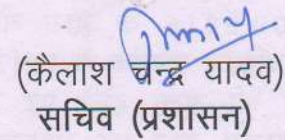 (कैलाश चन्द्र यादव)
सचिव (प्रशासन)